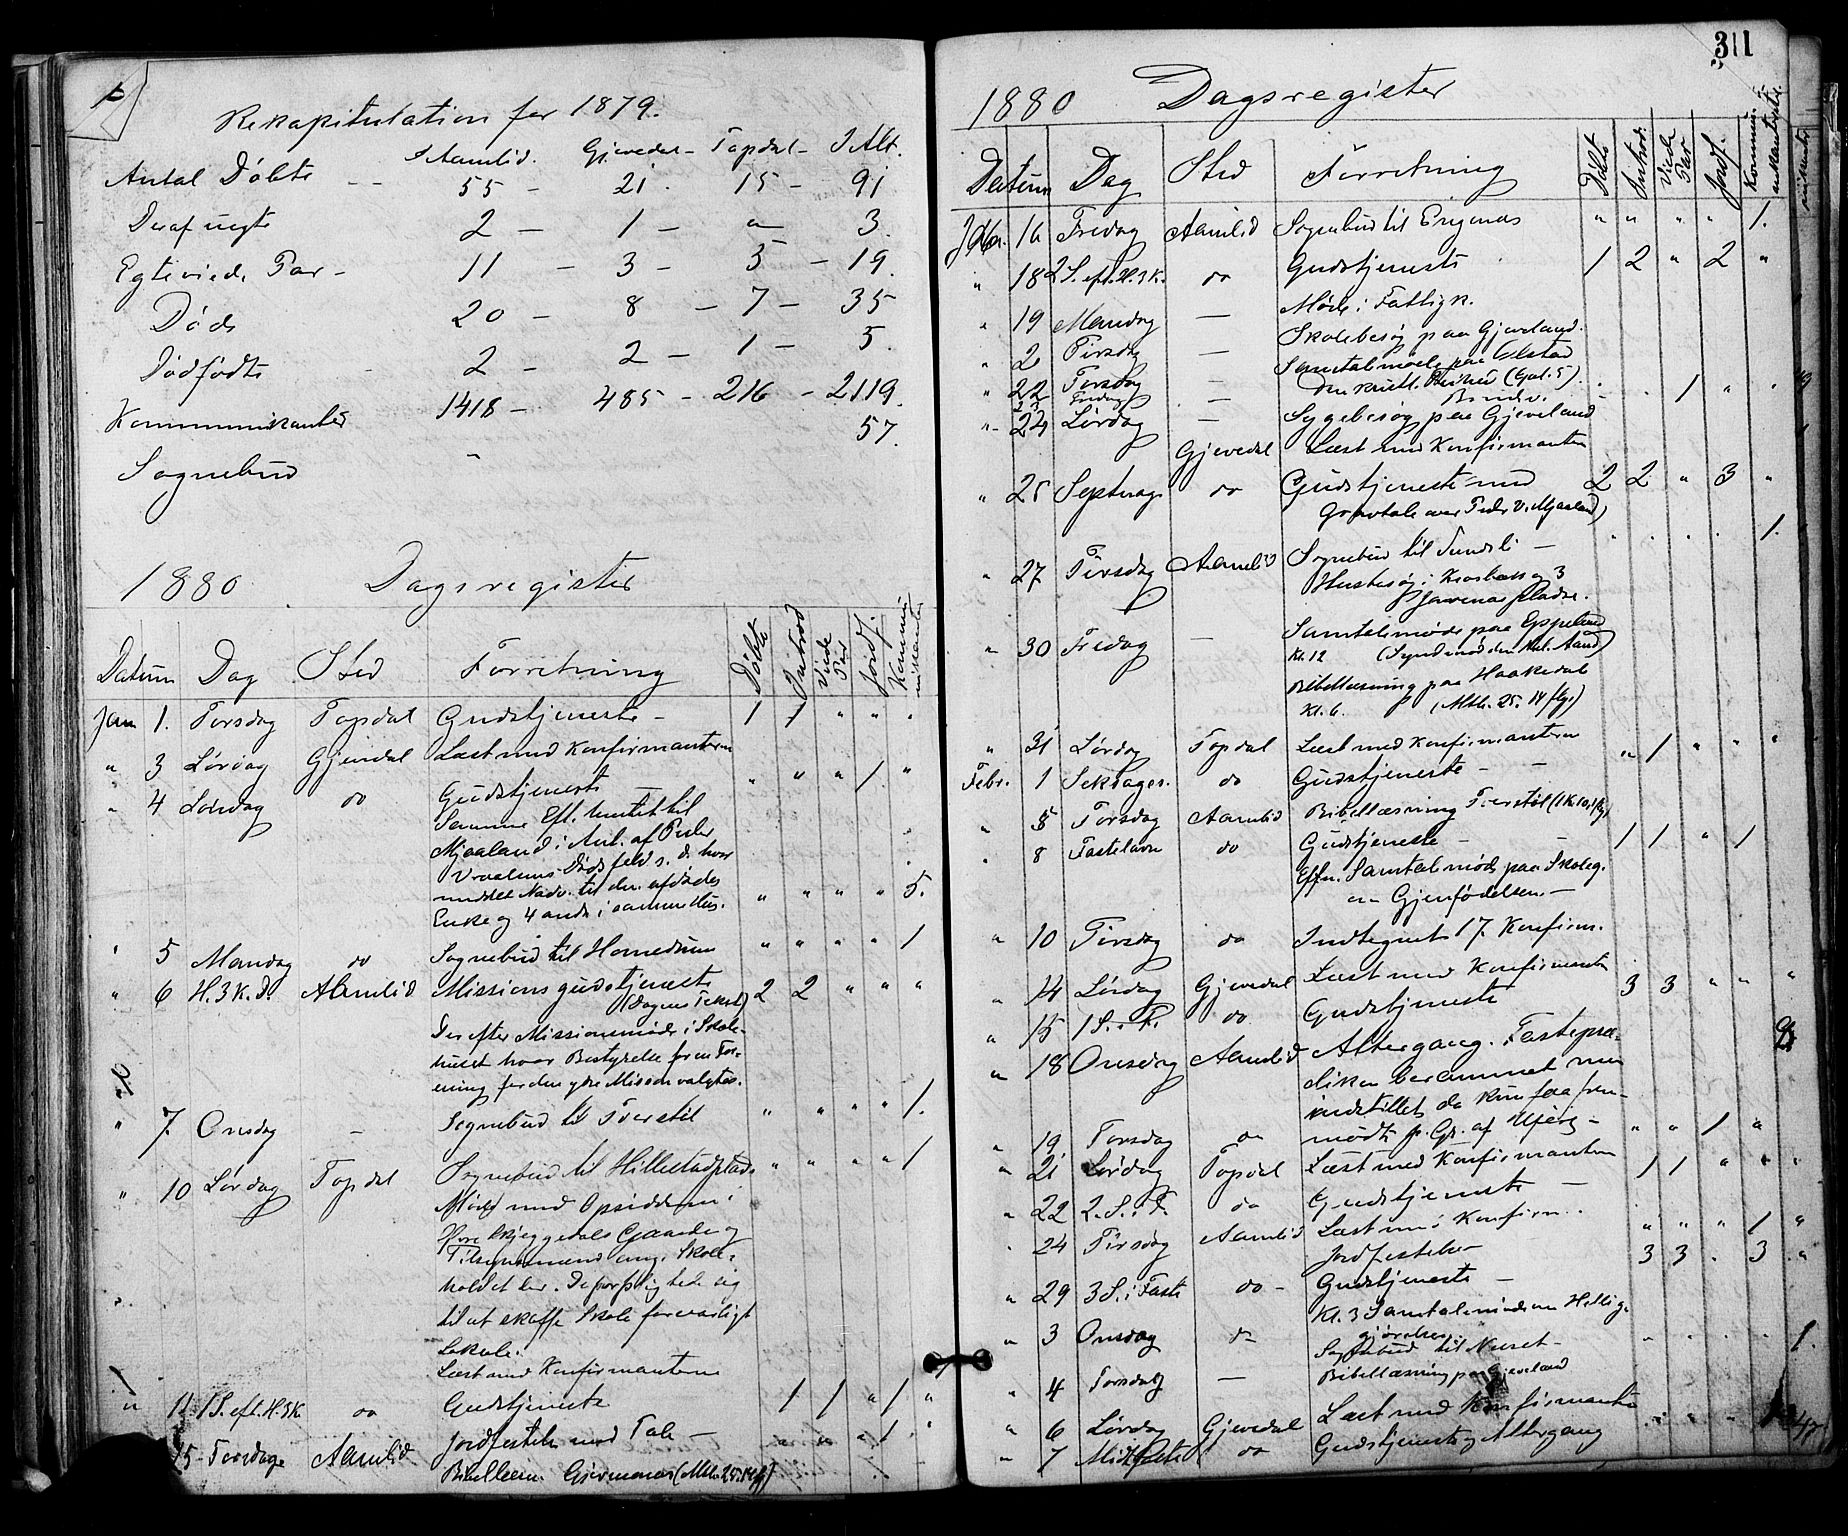 Rekapitulation for 1879.
I Aamlid. Gjevedal – Topdal – I Alt.
Antal Døbte – – 55 – 21 . 15 – 91
Deraf uegte 2 – 1 – " 3.
Egteviede Par – 11 – 3 – 5 – 19.
Døde 20 – 8 – 7 – 35
Dødfødte 2 – 2 – 1 – 5.
Kommunikanter 1418 – 485 – 216 – 2119.
Sognebud " 57.
1880 Dagsregister
Datum Dag Sted Forretning Døbte Introd Viede Par Jordf. Kommunikanter
Jan 1. Torsdag Topdal Gudstjeneste – 1 1 " " "
" 3 Lørdag Gjevedal Læst med Konfirmanterne
" 4 Søndag do Gudstjeneste – " " " 1. "
Samme Eft. hentet til
Mjaaland i Anl. af Peder
meddelt Nadv. til den afdødes
Enke og 4 andre i samme Hus. " " " " 5.
" 5 Mandag do Sognebud til Homedrum " " " " 1
" 6 H. 3 K. D. Aamlid Missionsgudstjeneste 2 2 " " "
(Dagens Tekst)
Derefter Missionsmøde i Skole-
huset hvor Bestyrelse for en For-
ening for den ydre Mission valgtes.
" 7. Onsdag – Sognebud til Tverstøl " " " " 1.
" 10 Lørdag Topdal Sognebud til Hillestadplads " " " " 1
Møde med Opsidderne i
Skjeggedals Gaarde og
Tilsynsmænd ang. Skole-
holdet der. De forpligtede sig
til at skaffe Skole forsvarligt
Lokale.
Læst med Konfirmanterne
" 11 1 S. eft. H. 3 K. do Gudstjeneste 1 1 " 1 "
15 Torsdag Aamlid Jordfestelse med Tale – " " " 1 "
Bibellæsn. Gjevenæs (Mth. 25. 14 flg)
311
1880 Dagsregister
Datum Dag Sted Forretning Døbte Introd. Viede Par Jordf. Kommunikanter
Jan. 16 Fredag Aamlid Sognebud til Engenæs " " " " 1.
" 18 2 S. eft. H. 3 K. do Gudstjeneste 1 2 " 2 "
" 19 Mandag – Møde i Fattigk.
" 2 Tirsdag – Skolebesøg paa Gjeveland.
" 22 Torsdag – Samtalemøde paa Ulstad
den kristl. Frihed (Gal. 5).
23 Fredag – Brudev. 1 "
" 24 Lørdag – Sygebesøg paa Gjeveland
Gjevedal Læst med Konfirmanterne
" 25 Septuag. do Gudstjeneste med 2 2 " 3 "
Gravtale over Peder V. Mjaaland)
" 27 Tirsdag Aamlid Sognebud til Sundsli – 1.
Husbesøg i Krosbæk og 3
Gjævenes pladse.
" 30 Fredag – Samtalemøde paa Eppeland
Kl. 12 (Synd mod den Hel. Aand)
Bibellæsning paa Haakedal
Kl. 6. (Mth. 25. 14 flg.)
" 31 Lørdag Topdal Læst med Konfirmanterne
Febr. 1 Seksages. do Gudstjeneste – – " 1 " " "
" 5 Torsdag Aamlid Bibellæsning Tverstøl (1 K. 10, flg)
" 8 Fastelavn do Gudstjeneste – 1 1 " 1
Eftm. Samtalemøde paa Skoleg.
om Gjenfødelsen –
" 10 Tirsdag do Indtegnet 17 Konfirm.
" 14 Lørdag Gjevedal Læst med Konfirmanterne
" 15 1 S. i F. do Gudstjeneste 3 3 " " "
" 18 Onsdag Aamlid Altergang. Fastepræ-
diken berammet men
indstillet da kun faa frem-
mødte p. Gr. af Uføre –
" 19 Torsdag do " " 1 "
" 21 Lørdag Topdal Læst med Konfirmanterne
" 22 2. S. i F. do Gudstjeneste – 1 1 " " "
" 24 Tirsdag Aamlid Læst med Konfirm.
Jordfestelse " " " 1 "
" 29 3 S. i Faste do – Gudstjeneste – 3 3 . 3 "
Kl. 3 Samtalemøde om Hellig-
gjørelsen
" 3 Onsdag do Sognebud til Neset – 1.
" 4 Torsdag – Bibellæsning paa Gjeveland
" 6 Lørdag Gjevedal Læst med Konfirmanterne
" 7 Midfaste do Gudstjeneste og Altergang 47